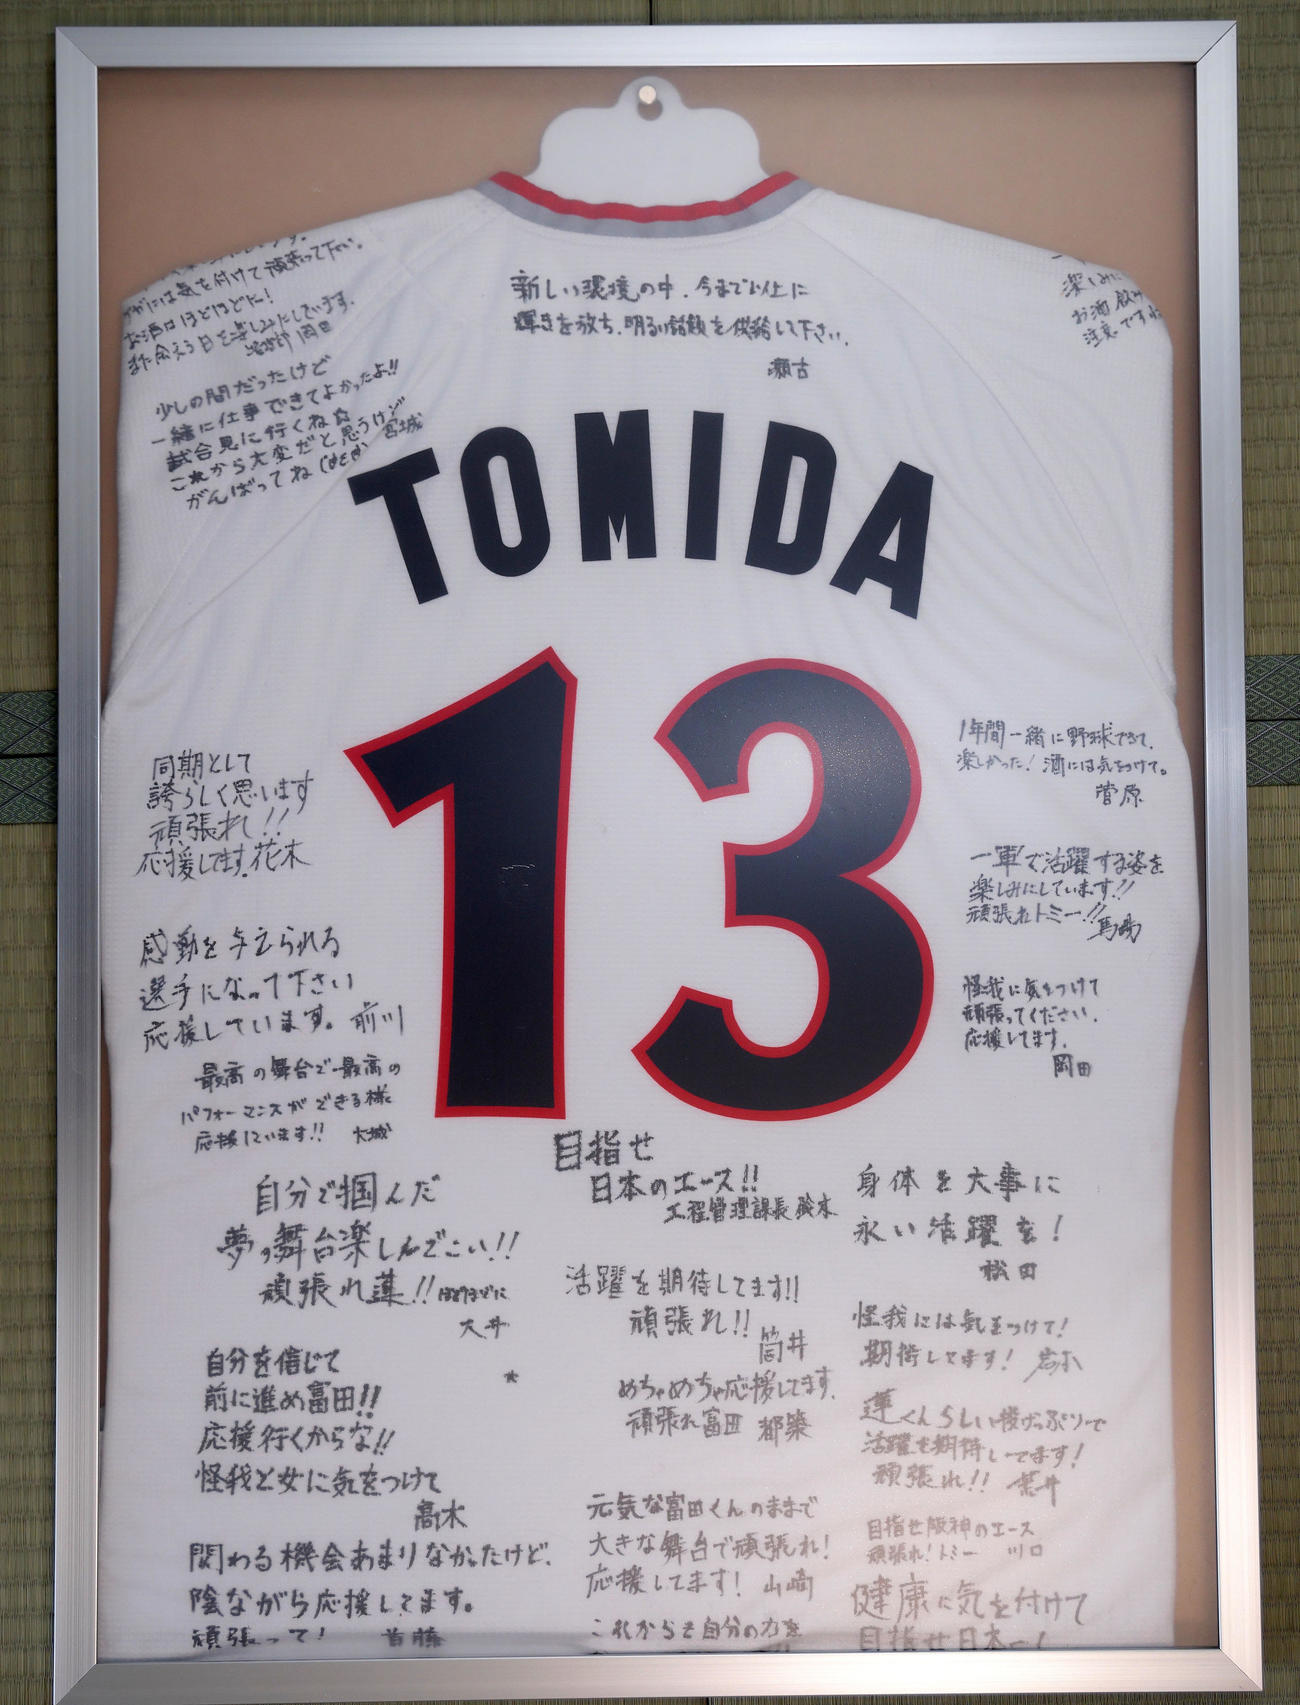 には気を付けて頑張って下さい。
お酒はほどほどに!
また会える日を楽しみにしています。
岡田
少しの間だったけど
一緒に仕事できてよかったよ!!
試合見に行くね☆
これから大変だと思うけど
がんばってね
宮城
新しい環境の中、今まで以上に
輝きを放ち、明るい話題を供給して下さい。
瀬古
楽しみに
お酒 飲み
注意ですね
TOMIDA
13
同期として
誇らしく思います
頑張れ!!
応援してます。花木
感動を与えられる
選手になって下さい
応援しています。前川
最高の舞台で最高の
パフォーマンスができる様
応援しています!! 大城
自分で掴んだ
夢の舞台楽しんでこい!!
頑張れ蓮!!ほどほどに
大井
自分を信じて
前に進め富田!!
応援行くからな!!
怪我と女に気をつけて
髙木
関わる機会あまりなかったけど、
陰ながら応援してます。
頑張って! 首藤
目指せ
日本のエース!!
工程管理課長 鈴木
活躍を期待してます!!
頑張れ!!
筒井
めちゃめちゃ応援してます。
頑張れ富田 都築
元気な富田くんのままで
大きな舞台で頑張れ!
応援してます! 山崎
これからも自分の力を
1年間一緒に野球できて、
楽しかった! 酒には気をつけて。
菅原
一軍で活躍する姿を
楽しみにしています!!
頑張れトミー!!
馬場
怪我に気をつけて
頑張ってください。
応援してます。
岡田
身体を大事に
永い活躍を!
松田
怪我には気をつけて!
期待してます!
蓮くんらしい投げっぷりで
活躍を期待してます!
頑張れ!! 荒井
目指せ阪神のエース
頑張れ!トミー 川口
健康に気を付けて
目指せ日本一!